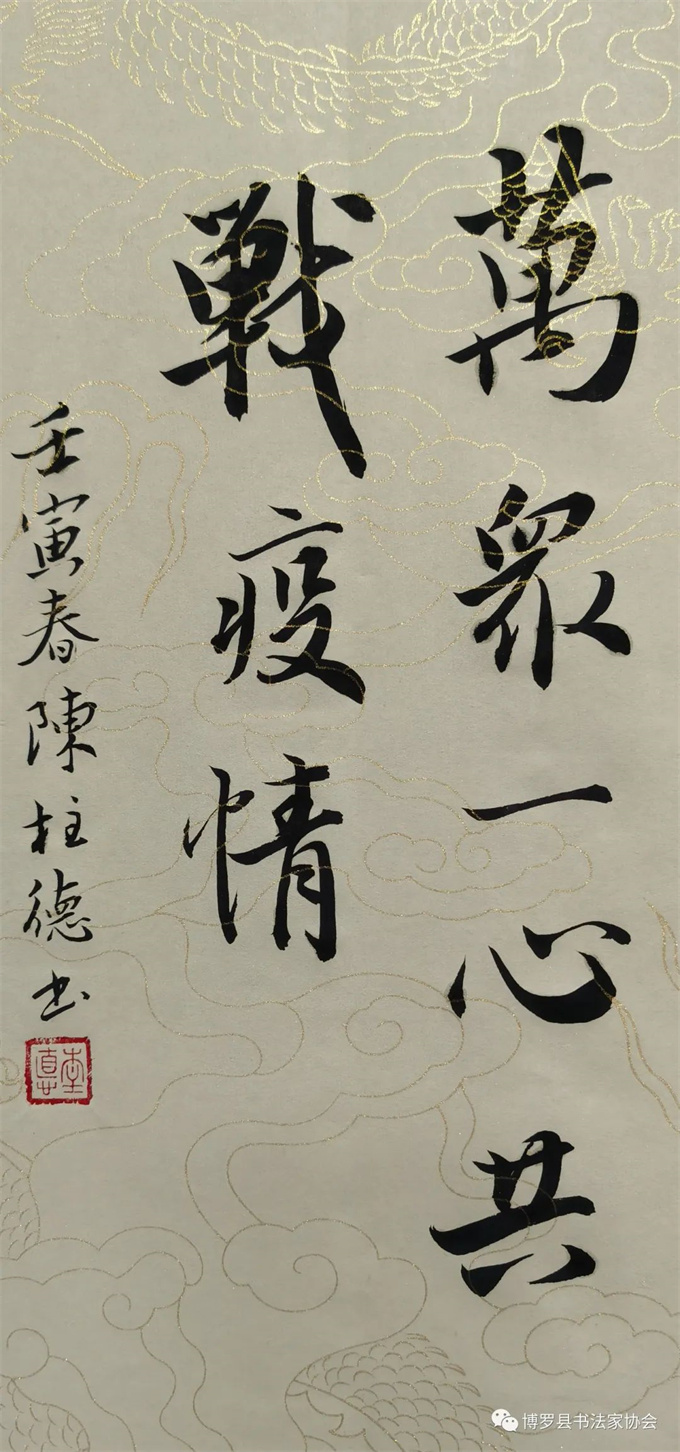 萬眾一心共
戰疫情
壬寅春陳柱德书
博罗县书法家协会